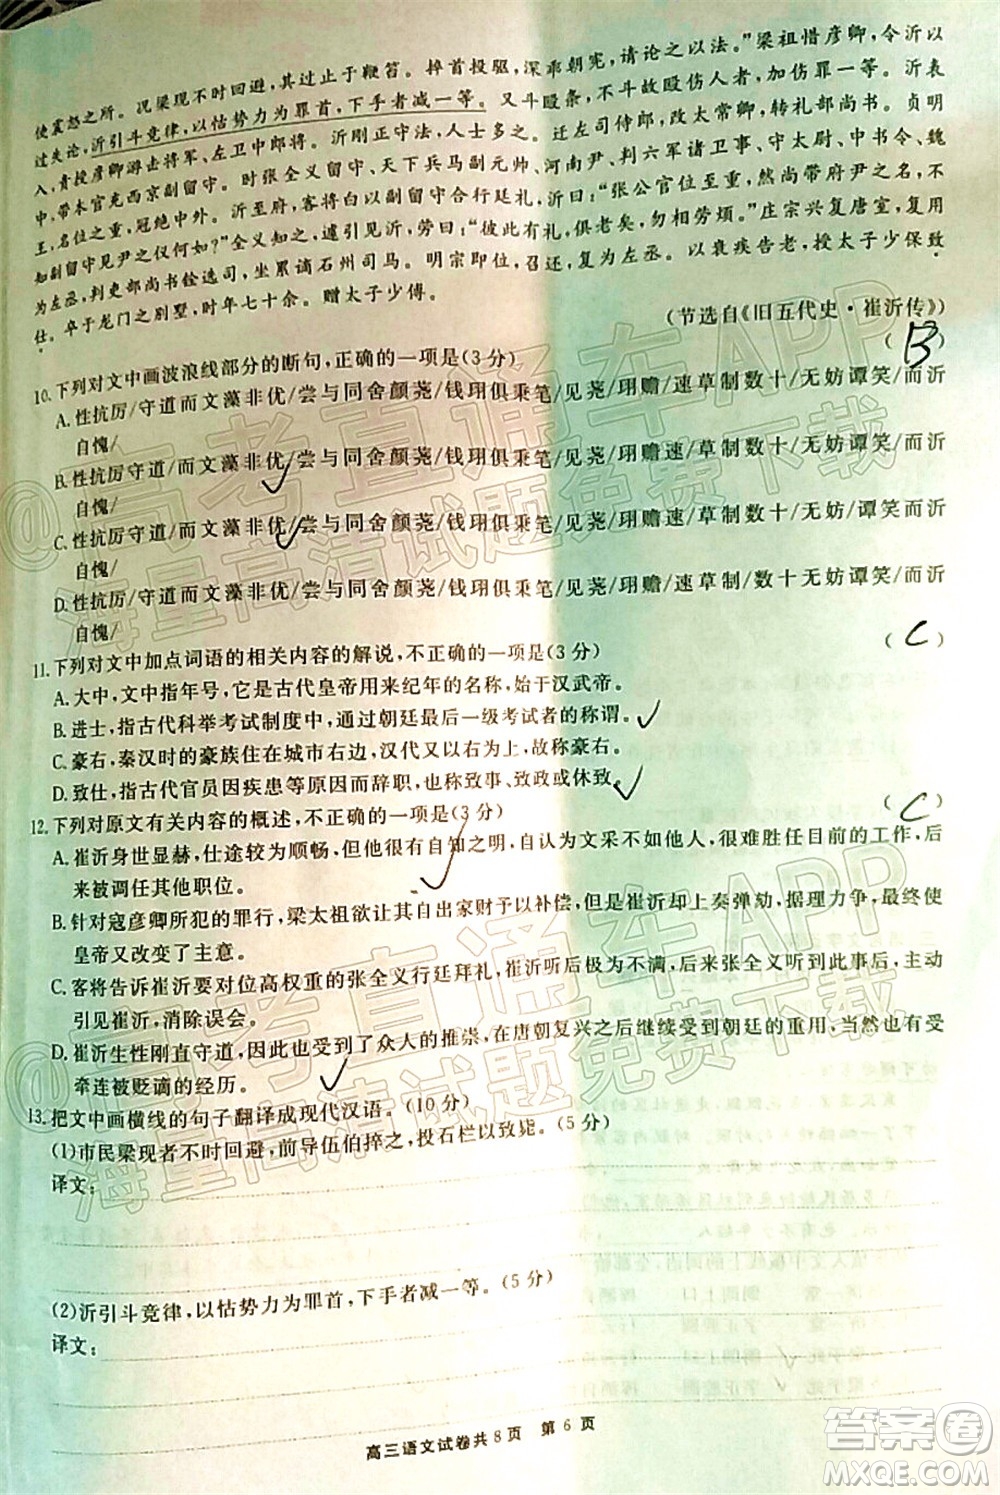 使震怒之所。况梁现不时回避,其过止于鞭笞。捽首投躯,深乖朝宪,请论之以法。”梁祖惜彦卿,令沂以
过失论,沂引斗竞律,以怙势力为罪首,下手者减一等。又斗殴条,不斗故殴伤人者,加伤罪一等。沂表
入,责授彦卿游击将军、左卫中郎将。沂刚正守法,人士多之。迁左司侍郎,改太常卿,转礼部尚书。贞明
中,带本官充西京副留守。时张全义留守、天下兵马副元帅、河南尹、判六军诸卫事、守太尉、中书令、魏
王,名位之重,冠绝中外。沂至府,客将白以副留守合行廷礼,沂曰:“张公官位至重,然尚带府尹之名,不
知副留守见尹之仪何如?”全义知之,遽引见沂,劳曰:“彼此有礼,俱老矣,勿相劳烦。”庄宗兴复唐室,复用
为左丞,判吏部尚书铨选司,坐累谪石州司马。明宗即位,召还,复为左丞。以衰疾告老,授太子少保致
仕。卒于龙门之别墅,时年七十余。赠太子少傅。
(节选自《旧五代史·崔沂传》)
10.下列对文中画波浪线部分的断句,正确的一项是(3分) ( B )
A.性抗厉/守道而文藻非优/尝与同舍颜荛/钱珝俱秉笔/见荛/珝赡/速草制数十/无妨谭笑/而沂
自愧/
B.性抗厉守道/而文藻非优/尝与同舍颜荛、钱珝俱秉笔/见荛/珝赡速/草制数十/无妨谭笑/而沂
自愧/
C.性抗厉守道/而文藻非优/尝与同舍颜荛/钱珝俱秉笔/见荛/珝赡速/草制数十/无妨谭笑/而沂
自愧/
D.性抗厉/守道而文藻非优/尝与同舍颜荛/钱珝俱秉笔/见荛/珝赡/速草制/数十无妨谭笑/而沂
自愧/
11.下列对文中加点词语的相关内容的解说,不正确的一项是(3分) ( C )
A.大中,文中指年号,它是古代皇帝用来纪年的名称,始于汉武帝。
B.进士,指古代科举考试制度中,通过朝廷最后一级考试者的称谓。
C.豪右,秦汉时的豪族住在城市右边,汉代又以右为上,故称豪右。
D.致仕,指古代官员因疾患等原因而辞职,也称致事、致政或休致。
12.下列对原文有关内容的概述,不正确的一项是(3分) ( C )
A.崔沂身世显赫,仕途较为顺畅,但有自知之明,很亲自认为文采不如他人,很难胜任目前的工作,后
来被调任其他职位。
B.针对寇彦卿所犯的罪行,梁太祖欲让其自出家财予以补偿,而崔沂却上奏弹劾,据理力争,最终使
皇帝又改变了主意。
C.客将告诉崔沂要对位高权重的张全义行廷拜礼,崔沂听后极为不满,后来张全义听到此事后,主动
引见崔沂,消除误会。
D.崔沂生性刚直守道,因此也受到了众人的推崇,在唐朝复兴之后继续受到朝廷的重用,当然也有受
牵连被贬谪的经历。
13.把文中画横线的句子翻译成现代汉语。(10分)
(1)市民梁现者不时回避,前导伍伯捽之,投石栏以致毙。(5分)
译文:
(2)沂引斗竞律,以怙势力为罪首,下手者减一等。(5分)
译文:
高三语文试卷共8页 第6页
@高考直通车APP
海量高清试题免费下载
@高考直通车APP
海量高清试题免费下载
答案圈
MXQE.COM